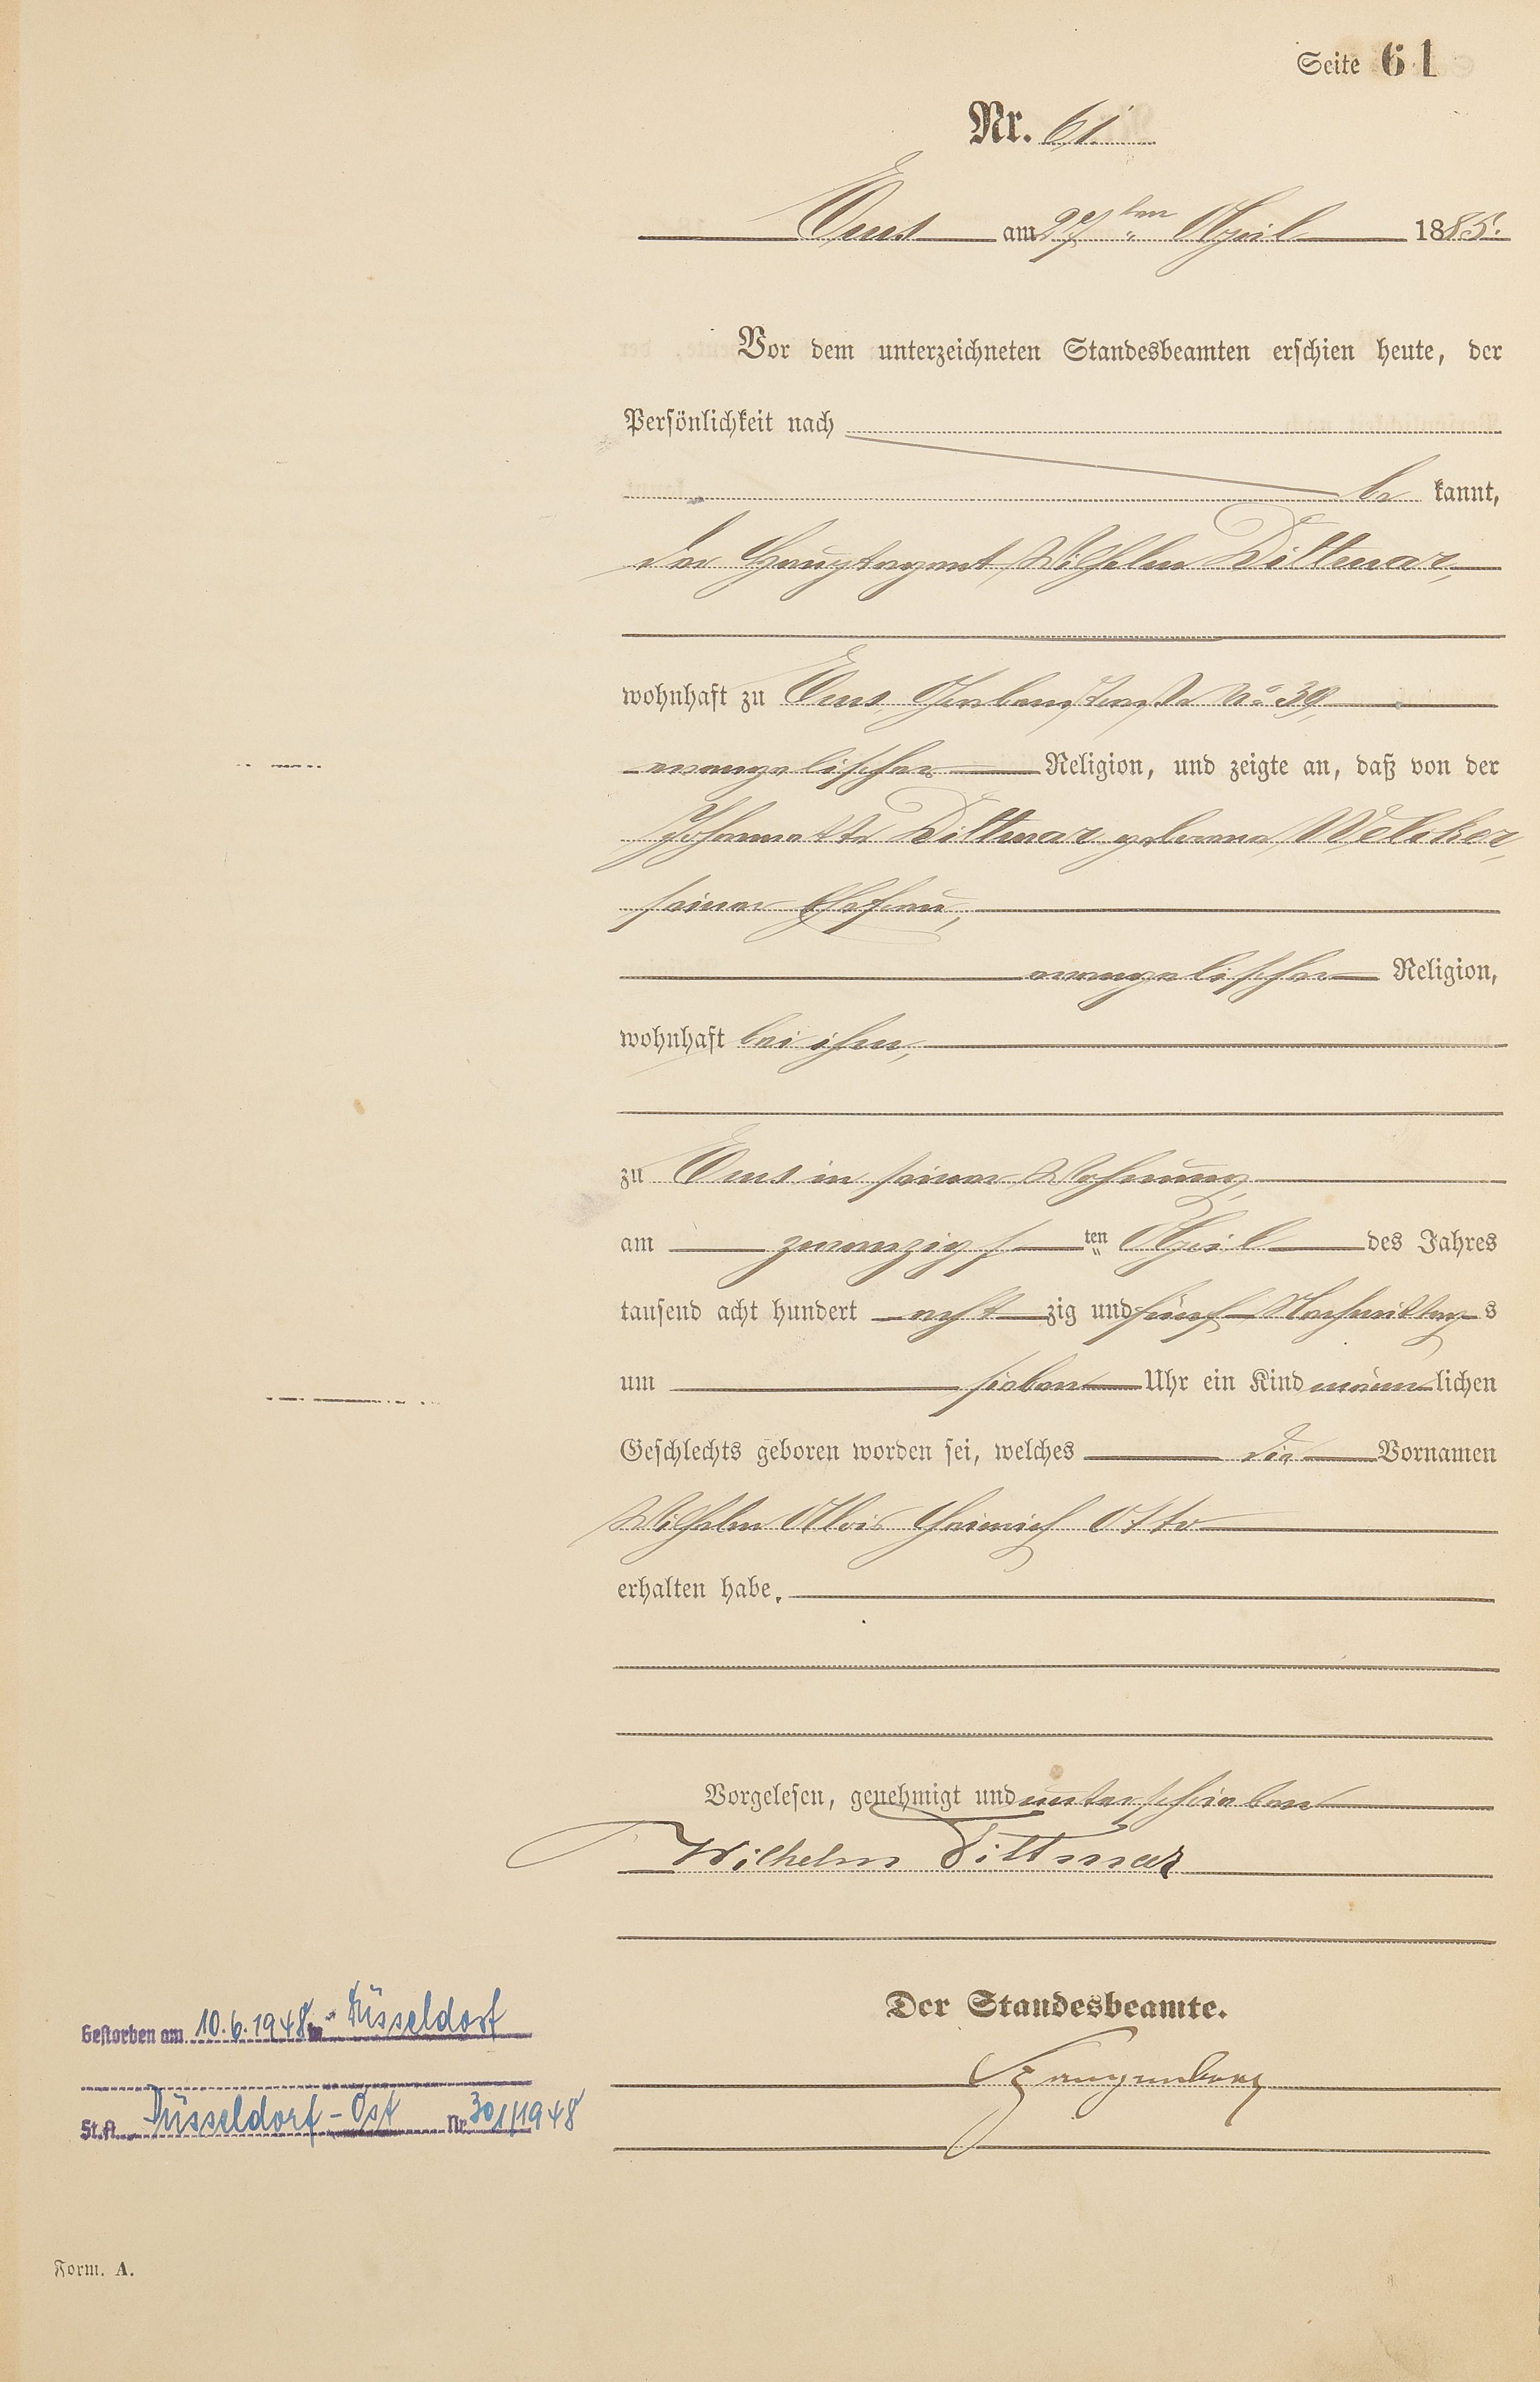 Seite 61
Nr. 61
Ems am 27ten April 1885.
Vor dem unterzeichneten Standesbeamten erschien heute, der
Persönlichkeit nach
be kannt,
der Hauptagent Wilhelm Dittmar,
wohnhaft zu Ems Grabenstraße No 39,
evangelischer Religion, und zeigte an, daß von der
Johannette Dittmar geborene Welcker,
seiner Ehefrau,
evangelischer Religion,
wohnhaft bei ihm,
zu Ems in seiner Wohnung,
am zwanzigsten April des Jahres
tausend acht hundert acht zig und fünf Nachmittags
um sieben Uhr ein Kind männlichen
Geschlechts geboren worden sei, welches die Vornamen
Wilhelm Alois Heinrich Otto
erhalten habe.
Vorgelesen, genehmigt und unterschrieben
Wilhelm Dittmar
Der Standesbeamte.
Gestorben am 10.6.1948 in Düsseldorf
St.A. Düsseldorf-Ost Nr. 301/1948
Form. A.